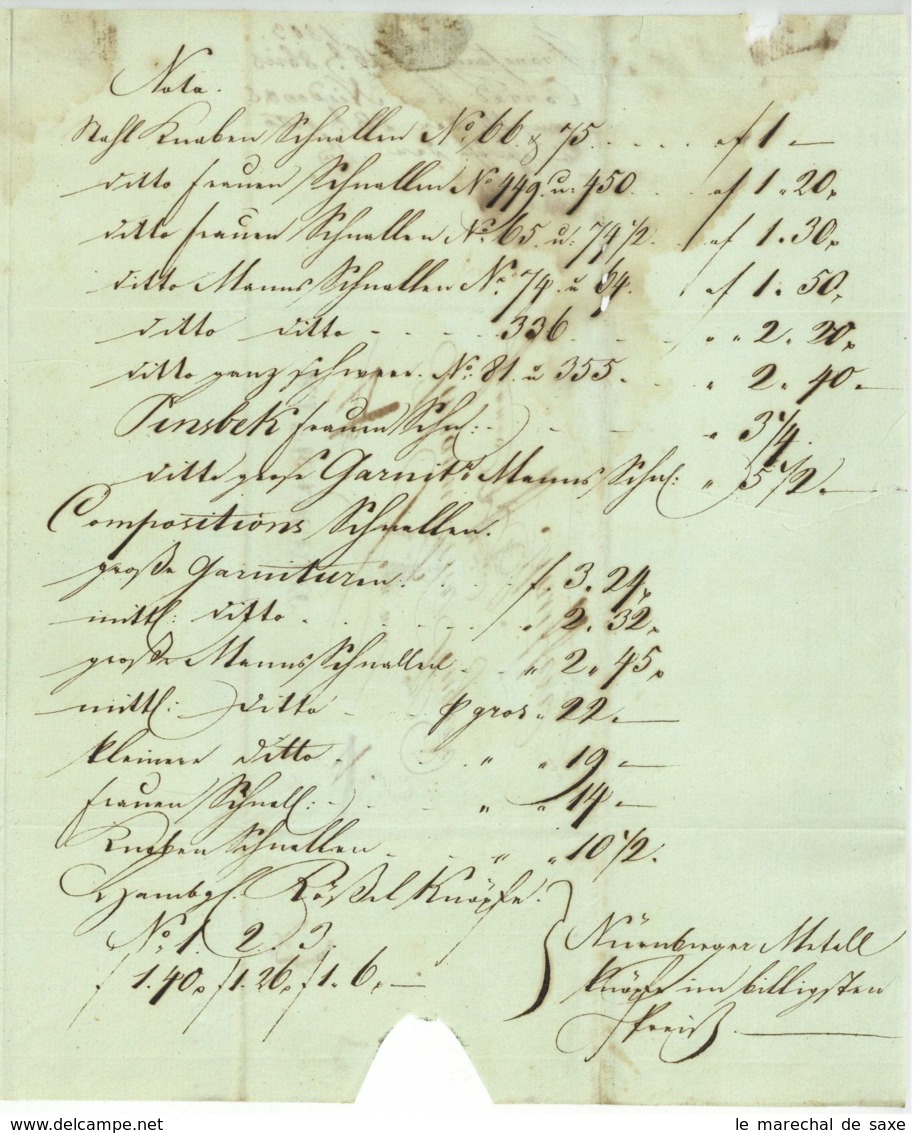 Nota.
Stahl Knaben Schnallen No. 66. & 75. . . . . . af 1 —
ditto Frauen Schnallen No 449. u: 450. . . af 1 " 20.
ditto Frauen Schnallen No. 65. u: 74 1/2. . . af 1. 30.
ditto Manns Schnallen No. 74. u 64. af 1. 50.
ditto ditto - - - - 336. - - " " 2. 20.
ditto ganz schwer. No. 81. u 355. . . " 2. 40. —
Pinsbek Frauen Schn: - - - " 3 1/4.
ditto große Garnit: Manns Schn: " 5 1/2. —
Compositions Schnallen.
große Garnituren. . . f. 3. 24.
mittl: ditto. . . . . . " 2. 32.
große Manns Schnallen - - " 2 " 45.
mittl: ditto - - p gros " 22. —
kleinere ditto. . . " " 19 —
Frauen Schnall: - . . " " 14 —
Knaben Schnallen - - " " 10 1/2.
Knöpfe.
No. 1. 2. 3.
f 1. 40. f 1. 26. f 1. 6. —
Nürnberger Metall
Knöpfe im billigsten
Preiß. —
le marechal de saxe